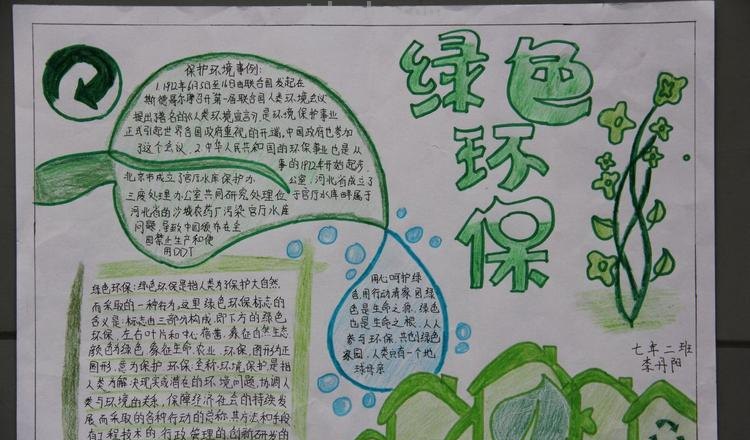 绿色
环
保
保护环境事例:
1.1972年6月5日至16日由联合国发起在
斯德哥尔摩召开第一届联合国人类环境会议
提出了著名的《人类环境宣言》,是环境保护事业
正式引起世界各国政府重视的开端,中国政府也参加
了这个会议.2.中华人民共和国的环保事业也是从
事的1972年开始起步,
北京市成立了官厅水库保护办公室,河北省成立了
三废处理办公室共同研究处理位于官厅水库畔属于
河北省的沙城农药厂污染官厅水库
问题,导致中国颁布在全
国禁止生产和使
用DDT
绿色环保:绿色环保是指人类为了保护大自然
而采取的一种行为,这里绿色环保标志的
含义是:标志由三部分构成,即下方的绿色
环保,左右叶片和中心蓓蕾,象征自然生态
颜色为绿色,象征生命,农业,环保,图形为正
圆形,意为保护.环保:全称环境保护是指
人类为解决现实或潜在的环境问题,协调人
类与环境的关系,保障经济社会的持续发
展而采取的各种行动的总称.其方法和手段
有工程技术的,行政管理的,创新研发的
用心呵护绿
色,用行动清家园绿
色是生命之源,绿色
也是生命之根,人人
参与环保,共创绿色
家园,人类只有一个地
球母亲
七年二班
李丹阳